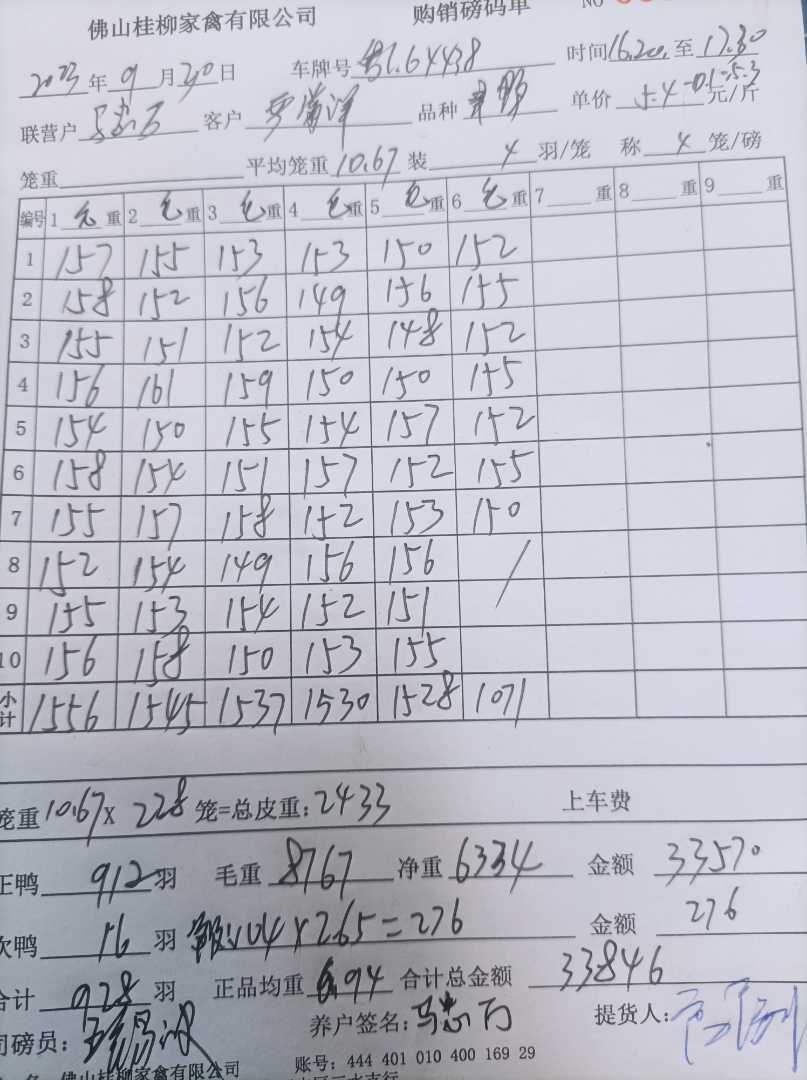 佛山桂柳家禽有限公司 购销磅码单 NO
2023年9月20日 车牌号 64438 时间16.20至17.30
联营户 客户 品种 单价 5.4-0.1=5.3元/斤
笼重 平均笼重10.67装4羽/笼 称4笼/磅
编号 1毛重 2毛重 3毛重 4毛重 5毛重 6毛重 7重 8重 9重
1 157 155 153 153 150 152
2 158 152 156 149 156 155
3 155 151 152 154 148 152
4 156 161 159 150 150 155
5 154 150 155 154 157 152
6 158 154 151 157 152 155
7 155 157 158 152 153 150
8 152 154 149 156 156 /
9 155 153 154 152 151
10 156 158 150 153 155
小计 1556 1545 1537 1530 1528 1071
笼重10.67X228笼=总皮重:2433 上车费
正鸭912羽 毛重8767 净重6334 金额33570
次鸭16羽 104×2.65=276 金额276
合计928羽 正品均重6.94 合计总金额33846
司磅员: 养户签名: 提货人:
佛山桂柳家禽有限公司 账号: 444 401 010 400 169 29